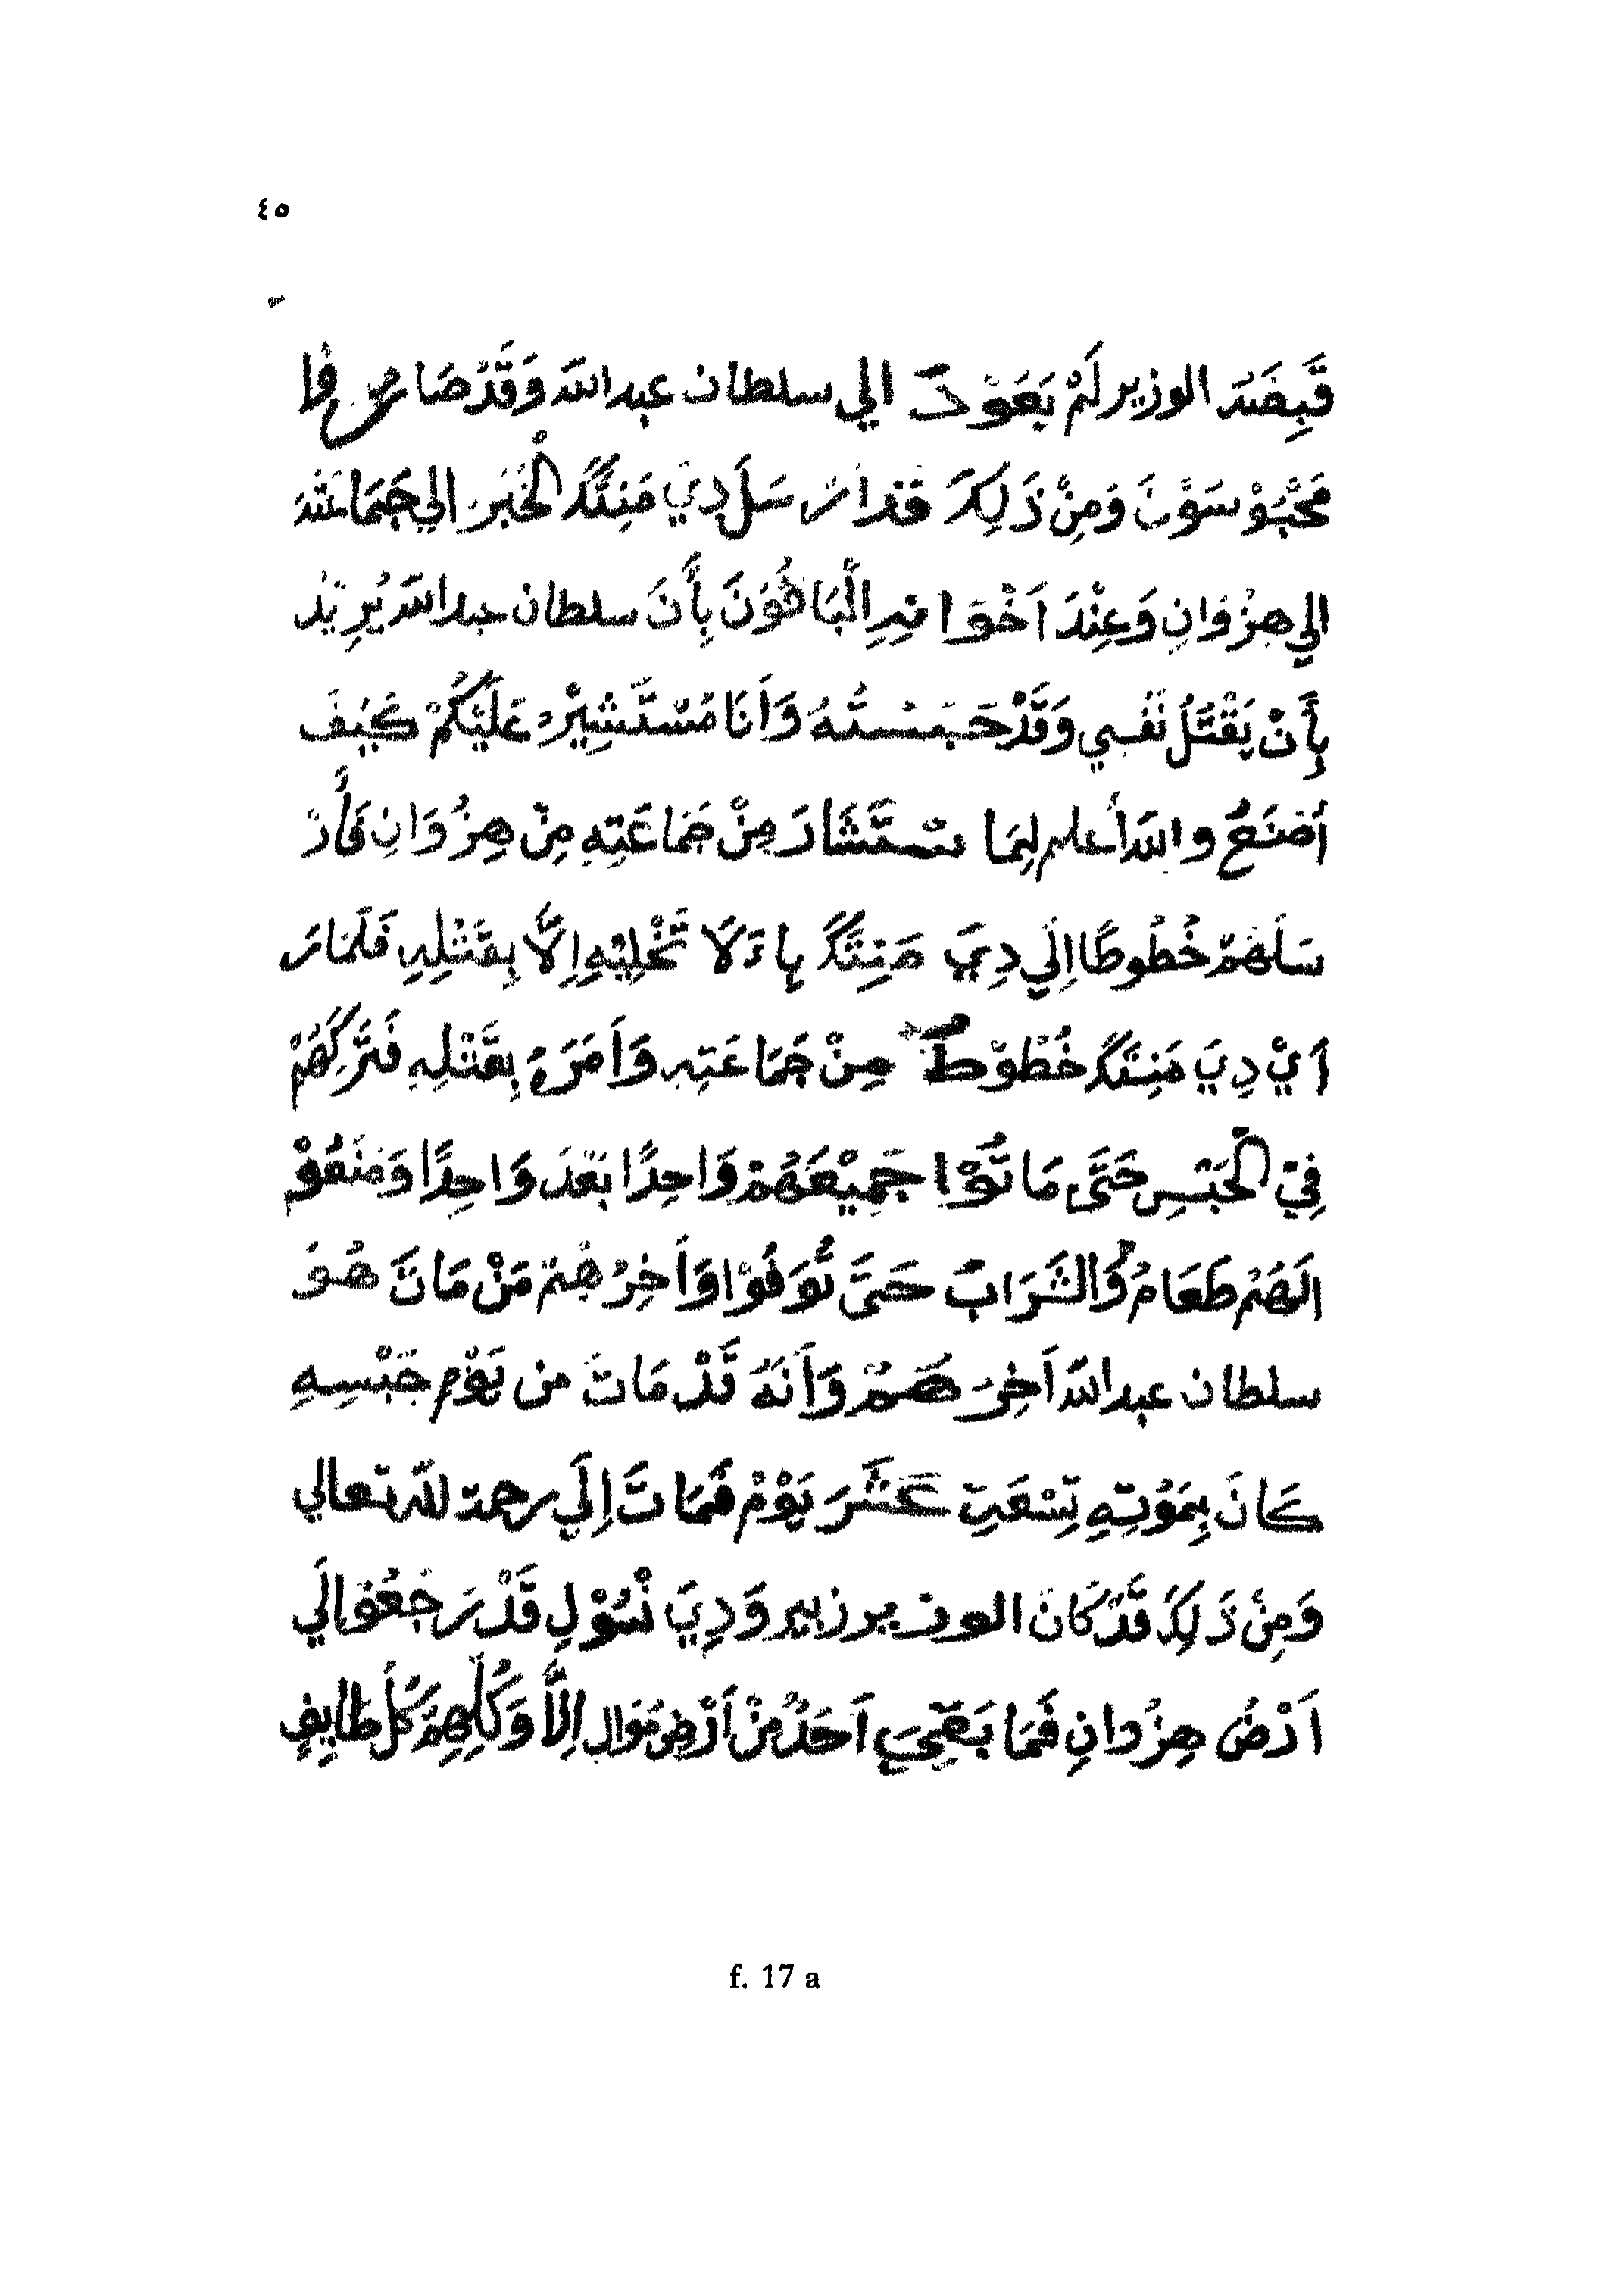 ٤٥
قَبِضَهُ الوزير لَمْ يَعَوْدَ الي سلطان عبدالله وَقَدْصَارُ
مَحْبُوْسَوْنَ وَمِنْ ذَلِكَ قدارْسَلَ دِيَ مَنِنْتَكَ الْخَبَرَ الي جَمَاعَتَهُ
الي هِزُوَانِ وَعِنْدَ اَخْوَانِهِ الْبَاقُوْنَ بِأَنَ سلطان عبدالله يُرِيْدُ
بِأَنْ يَقْتَلُ نَفْسي وَقَدْ حَبَسْتُهُ وَاَنَا مُسْتَشِيْرُ عَلَيْكُمْ كَيْفَ
اَصْنَعُ والله أعلم لِمَا سْتَشَارَ مِنْ جَمَاعَتِهِ مِنْ هِزُوَانِ فَأَرْ
سَلَهُمْ خُطُوطًا اِلَي دِيَ مَنِنْتَكَ بِاءَلَا تَخْلِيْهِ اِلاَّ بِقَتْلِهِ فَلَمَارَ
اَيْ دِيَ مَنِنْتَكَ خُطْوْطَ مِنْ جَمَاعَتِهِ وَاَمَرَءَ بِقَتْلِهِ فَتَرَكَهُمْ
فِيْ الْحَبْسِ حَتَّى مَاتُوْا جَمِيْعَهُمْ وَاحِدًا بَعْدَ وَاحِدًا وَمَنَعُوْ
الَهُمْ طَعَامُ وَالشَرَابَ حَتَّى تُوَفَوْا وَاَخِرُهُمْ مَنْ مَاتَ هُوَ
سلطان عبدالله اَخِرَهُمْ وَاَنَهُ قَدْ مَاتَ من يَوْمِ حَبْسِهِ
كَانَ بِمَوْتِهِ تِسْعَتِ عَشَرَ يَوْمْ فَمَاتَ اِلَي رحمة لله تعالي
وَمِنْ ذَلِكَ قَدْ كَانَ الوزير زبير وَدِيَ نْسُوْلِ قَدْ رَجَعُوْالَي
اَرْضُ هِزُوانِ فَمَا بَقِيَ اَحَدُ مِنْ اَرْضِ مُوَالِ اِلاَّ وَكُلِّهِمْ كُلُ طايِفٍ
f. 17 a